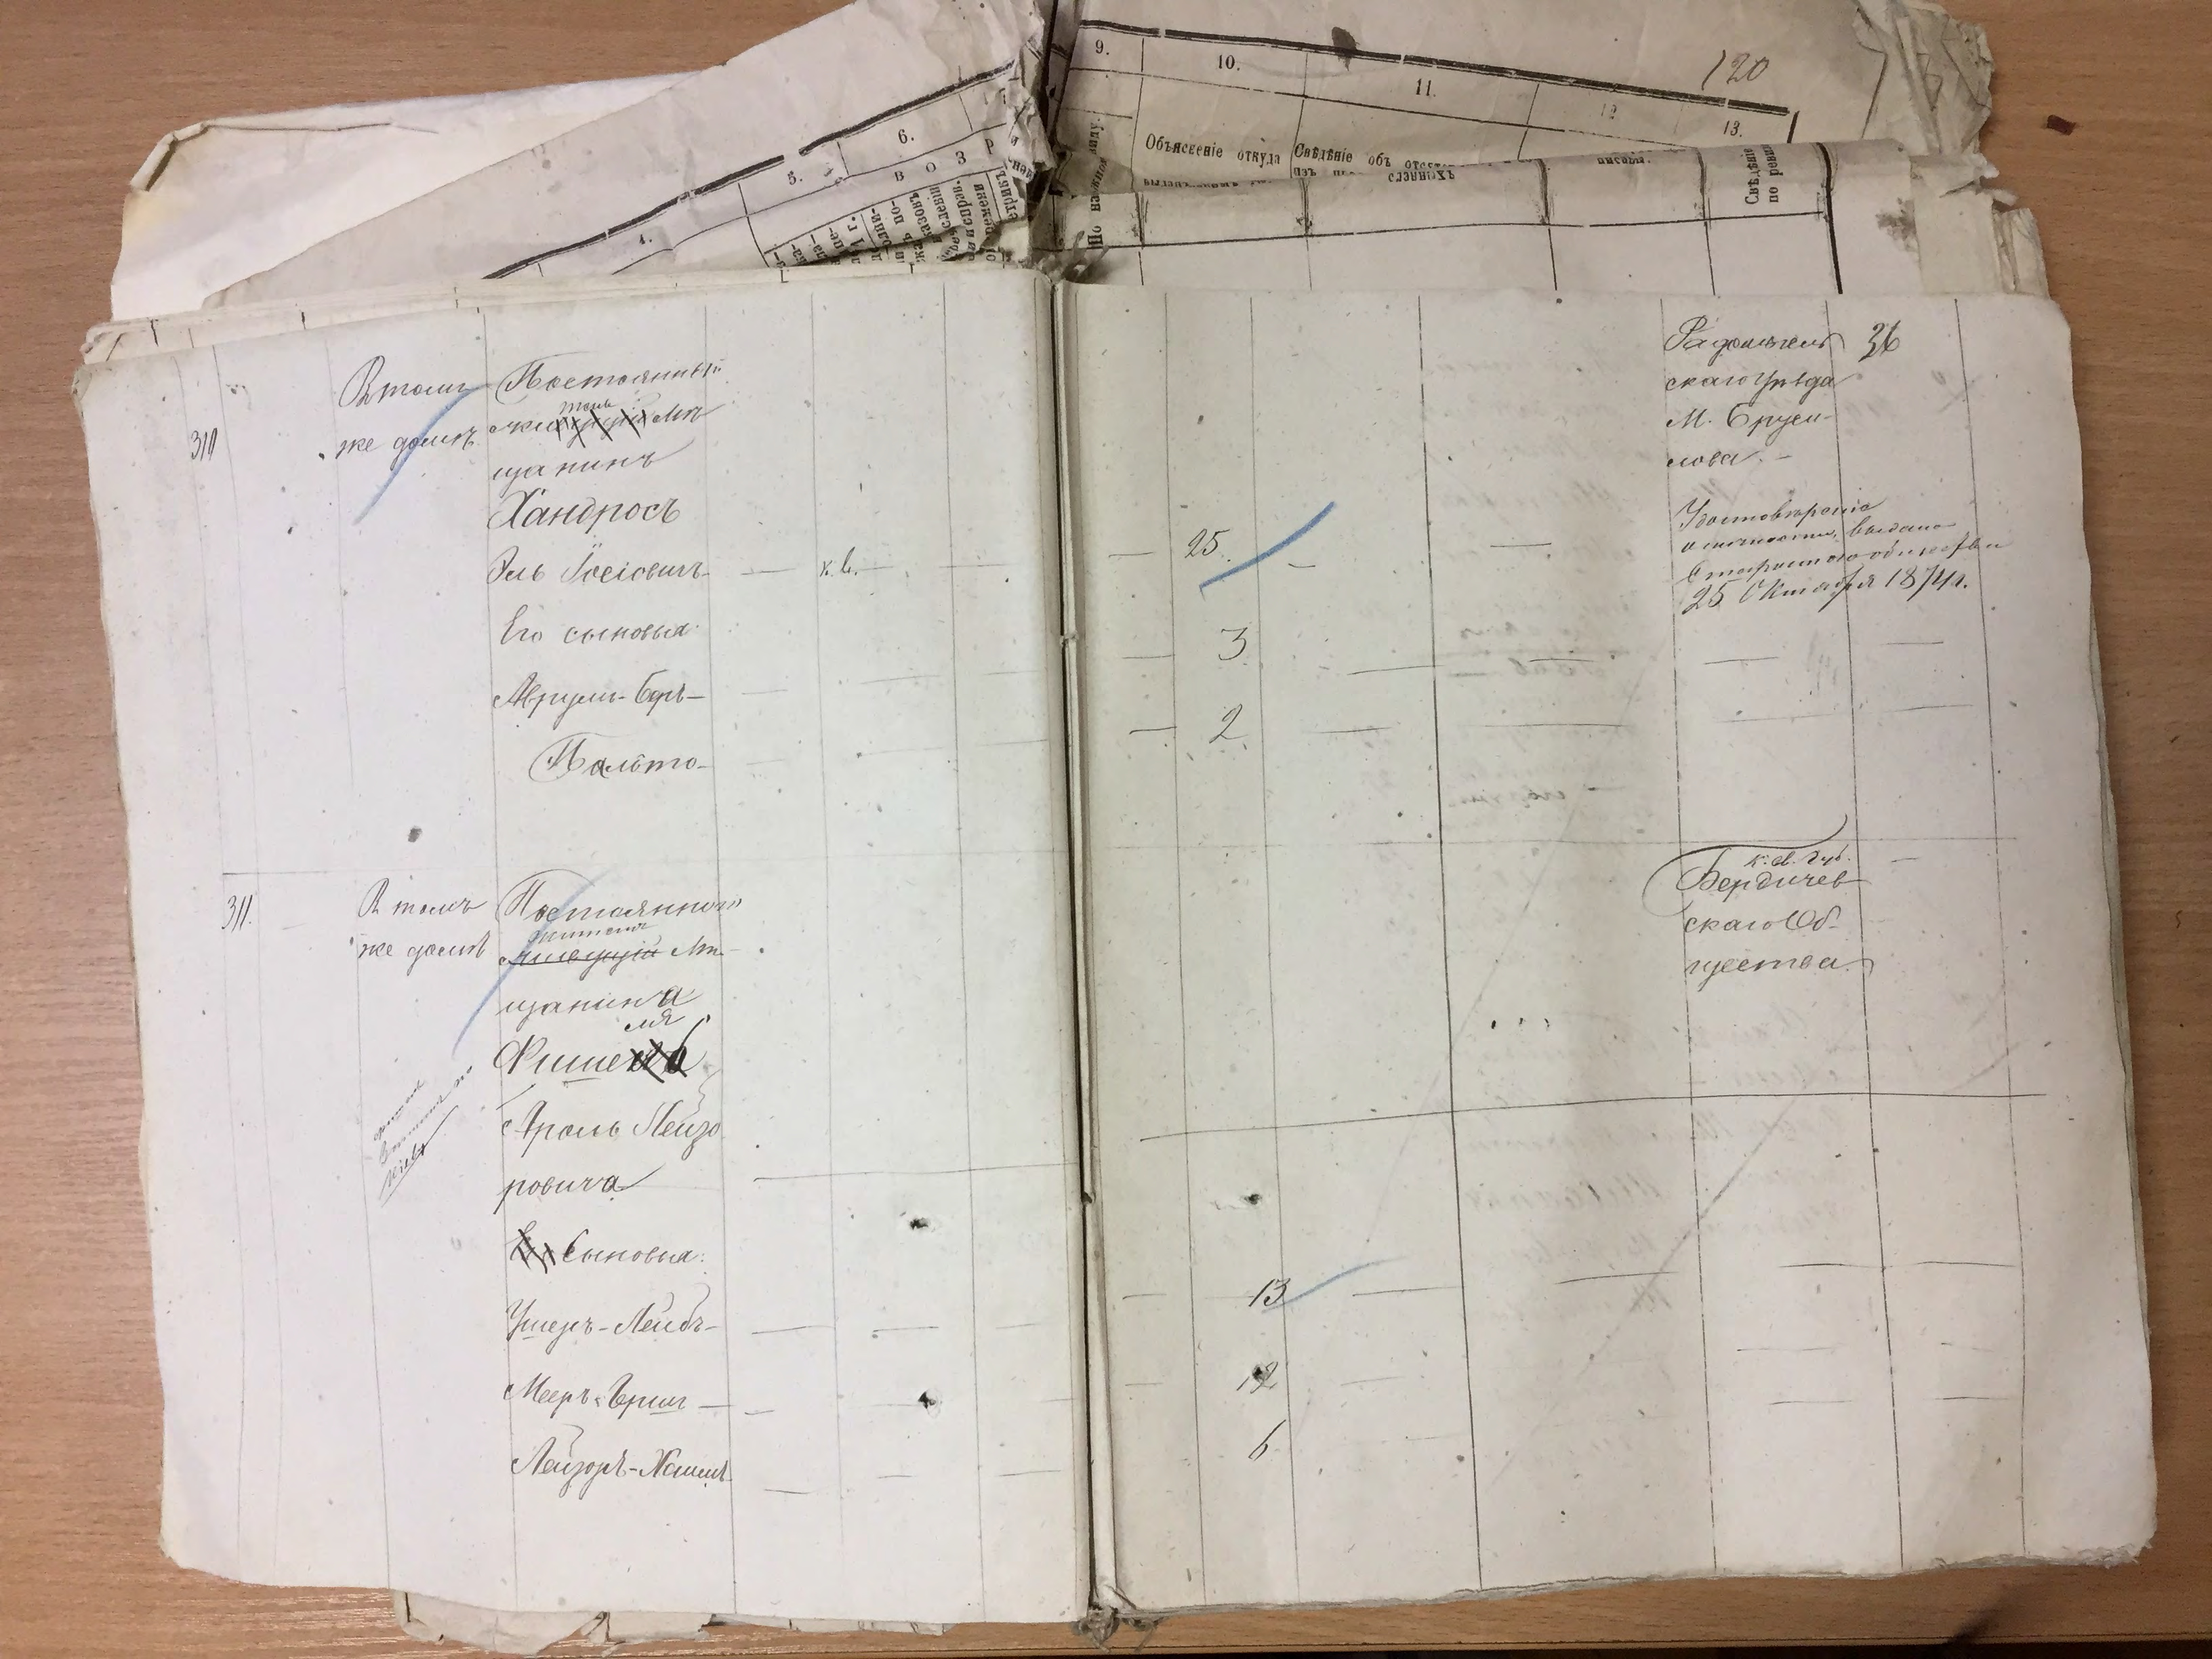 120
9.
10.
11.
12
13.
Объясненіе откуда
Свѣдѣніе объ
По наружному виду.
Свѣдѣніе
по ревиз
4.
5.
6.
В О З Р
310
Въ томъ
же домѣ
Постоянный
жи
тель
Мѣ
щанинъ
Хандросъ
Эль Іосіовичъ
к. в.
25
Его сыновья
Аврумъ-Беръ
3
Пальто
2
Радомысль
скаго уѣзда
М. Бруси-
лова
36
Удостовѣреніе
о личности, выдано
Старшиною общества
25 Октября 1874 г.
311.
Въ томъ
же домѣ
Постояннаго
жителя
живущій Мѣ-
щанина
Фише
ля
Ароль Лейзо
ровича
Сыновья:
Ушеръ-Лейбъ
13
Мееръ-Гершъ
12
Лейзоръ-Хаимъ
6
к. в. Губ.
Бердичев
скаго Об-
щества